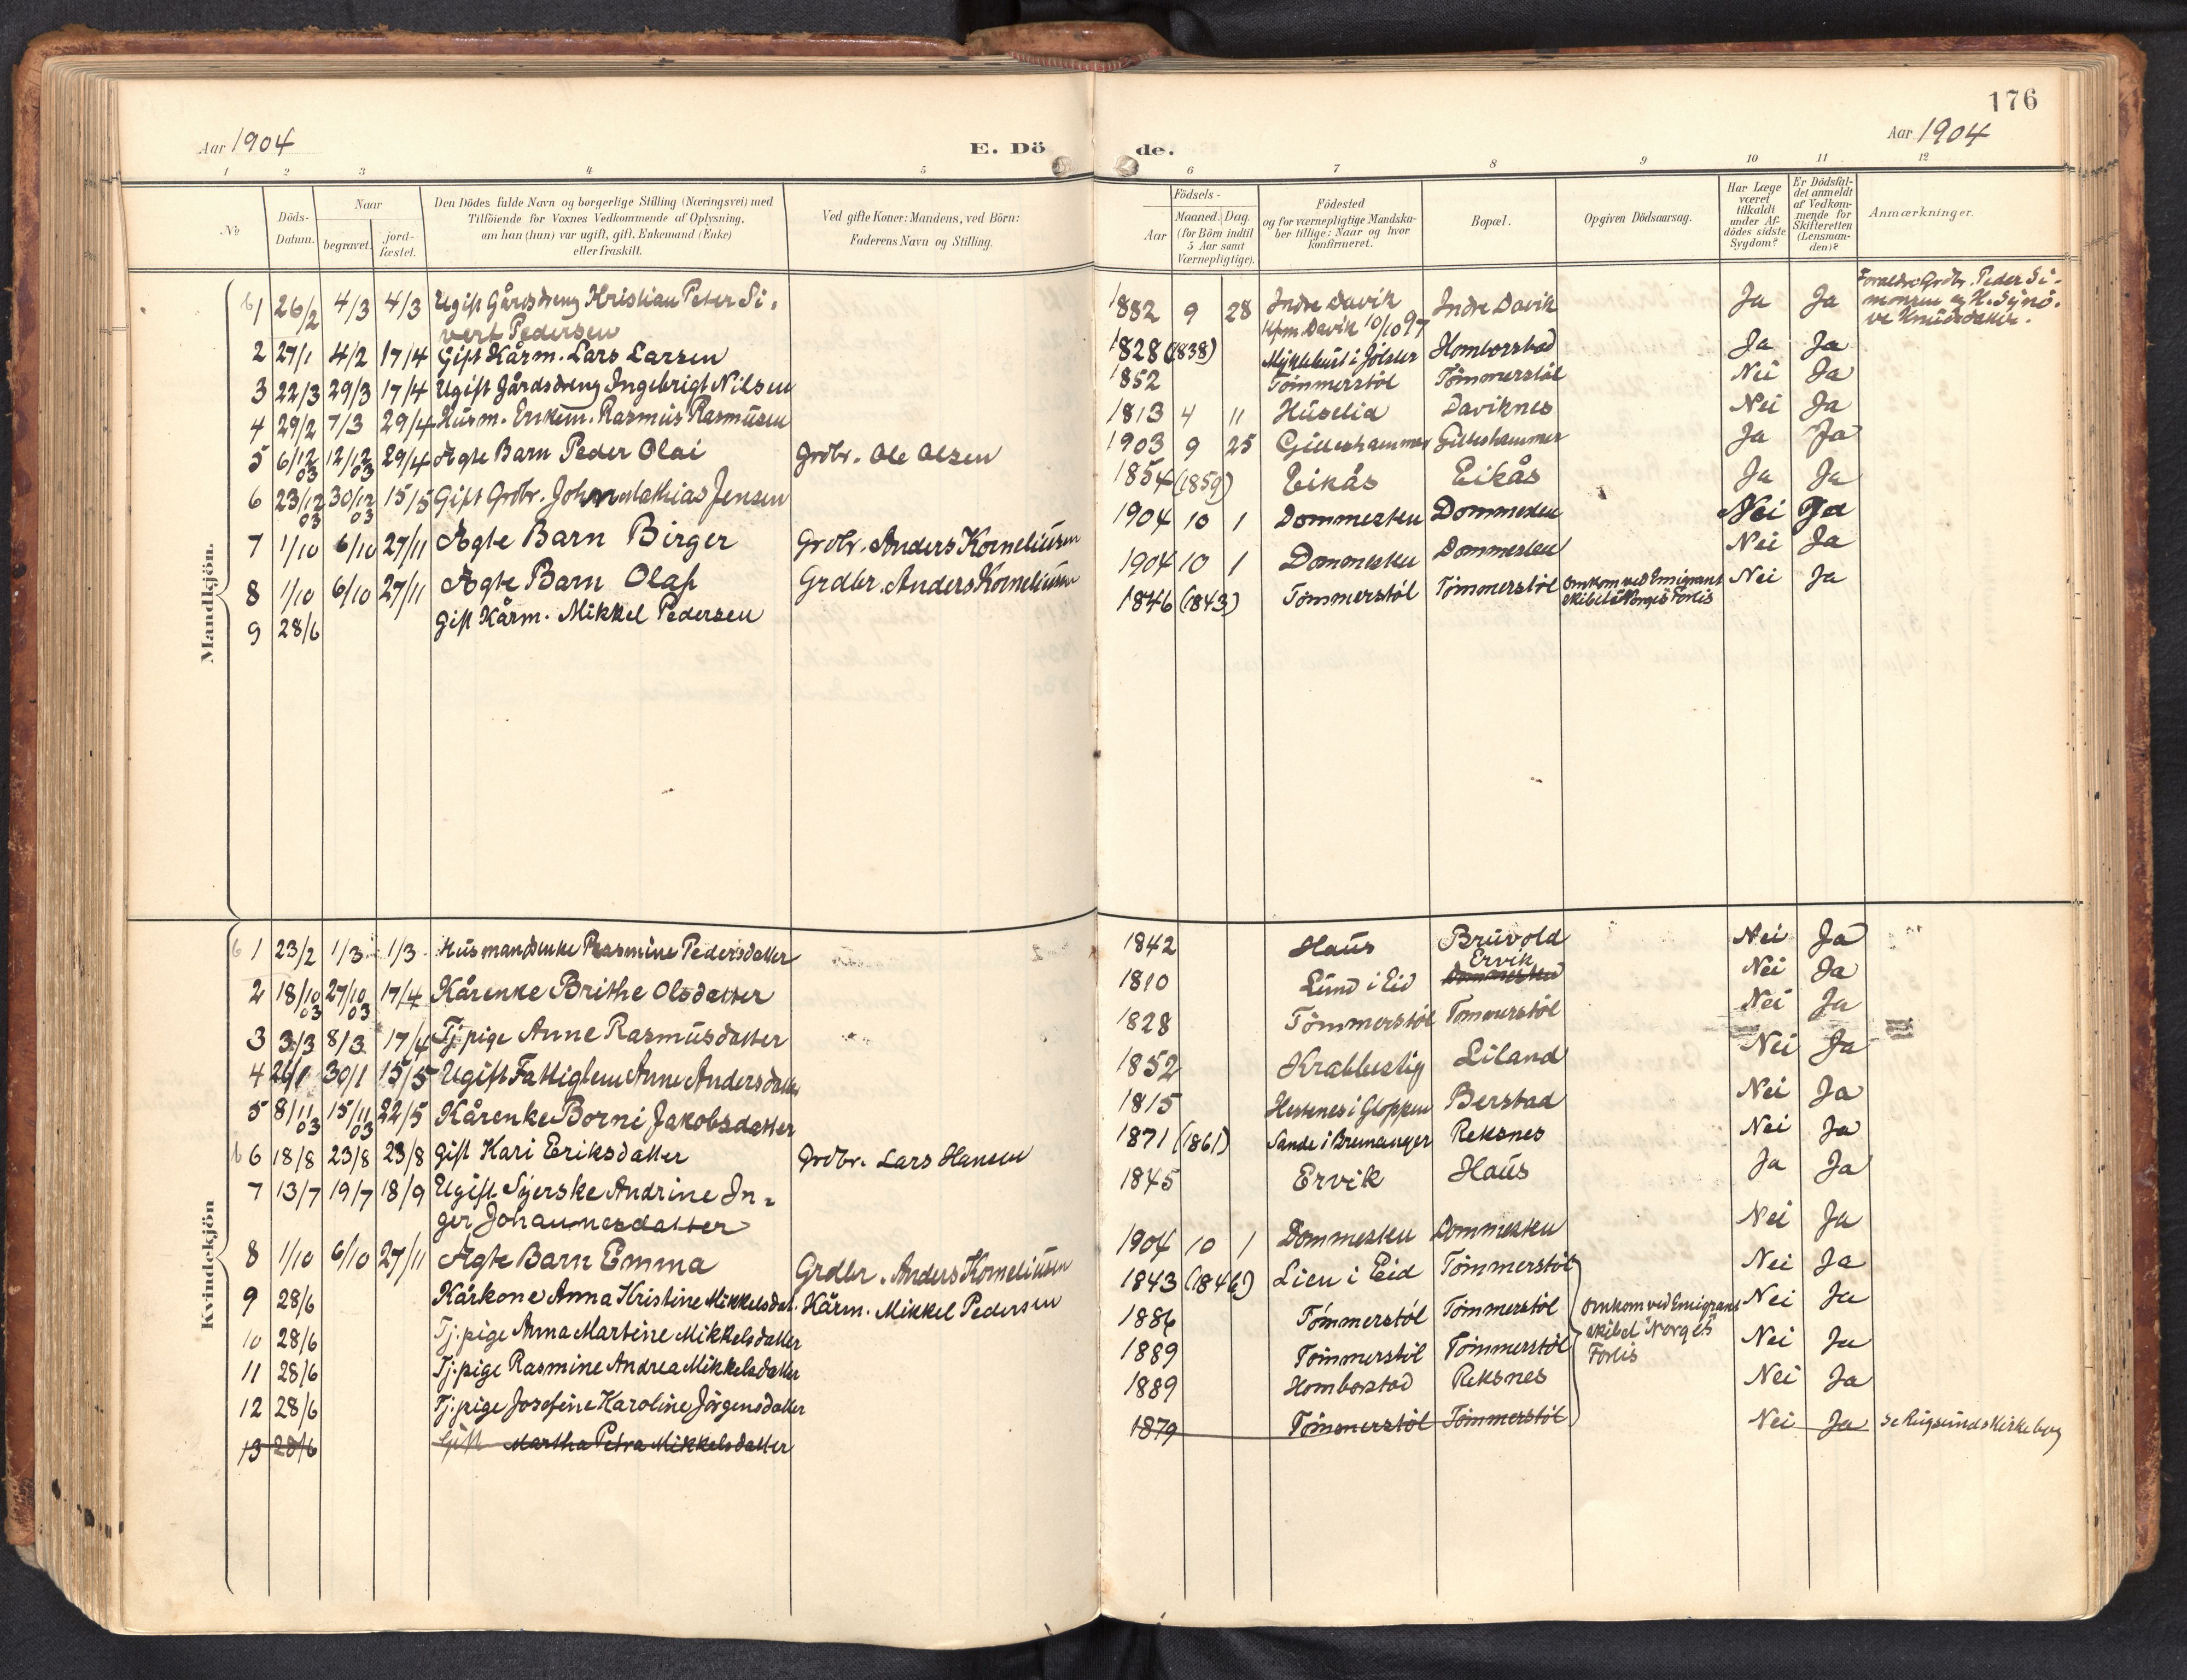 176
Aar 1904
E. Dö
de.
Aar 1904
1 2 3 4 5 6 7 8 9 10 11 12
No
Döds-
Datum.
Naar
begravet.
jord-
fæstet.
Den Dödes fulde Navn og borgerlige Stilling (Næringsvei) med
Tilföiende for Voxnes Vedkommende af Oplysning,
om han (hun) var ugift, gift, Enkemand (Enke)
eller fraskilt.
Ved gifte Koner: Mandens, ved Börn:
Faderens Navn og Stilling.
Födsels-
Aar
Maaned. Dag.
(for Börn indtil
5 Aar samt
Værnepligtige).
Födested
og for værnepligtige Mandska-
ber tillige: Naar og hvor
konfirmeret.
Bopæl.
Opgiven Dödsaarsag.
Har Læge
været
tilkaldt
under Af-
dödes sidste
Sygdom?
Er Dödsfal-
det anmeldt
af Vedkom-
mende for
Skifteretten
(Lensman-
den)?
Anmærkninger.
Mandkjön.
1 26/2 4/3 4/3 Ugift Gårdsdreng Kristian Peter Si-
vert Pedersen
1882 9 28 Indre Davik
kfm Davik 10/10 97
Indre Davik Ja Ja Forældre Grdbr. Peder Si-
monsen og H. Synö-
ve Knudsdatter.
2 27/1 4/2 17/4 Gift Kårm. Lars Larsen 1828 (1838) Myklebust i Jölster Homborstad Ja Ja
3 22/3 29/3 17/4 Ugift Gårdsdreng Ingebrigt Nilsen 1852 Tömmerstöl Tömmerstöl Nei Ja
4 29/2 7/3 29/4 Husm. Enkem. Rasmus Rasmusen 1813 4 11 Huselia Daviknes Nei Ja
5 6/12 03 12/12 03 29/4 Ægte Barn Peder Olai Grdbr. Ole Olsen 1903 9 25 Gilleshammer Gilleshammer Ja Ja
6 23/12 03 30/12 03 15/5 Gift Grdbr. John Mathias Jensen 1854 (1859) Eikås Eikås Ja Ja
7 1/10 6/10 27/11 Ægte Barn Birger Grdbr. Anders Korneliusen 1904 10 1 Dommesten Dommesten Nei Ja
8 1/10 6/10 27/11 Ægte Barn Olaf Grdbr. Anders Korneliusen 1904 10 1 Dommesten Dommesten Nei Ja
9 28/6 Gift Kårm. Mikkel Pedersen 1846 (1843) Tömmerstöl Tömmerstöl Omkom ved Emigrant
skibet "Norges" Forlis
Nei Ja
Kvindekjön
1 23/2 1/3 1/3 Husmandsenke Rasmine Pedersdatter 1842 Haus Bruvold Nei Ja
2 18/10 03 27/10 03 17/4 Kårenke Brithe Olsdatter 1810 Lund i Eid Ervik
Dommesten Nei Ja
3 3/3 8/3 17/4 Tj. pige Anne Rasmusdatter 1828 Tömmerstöl Tömmerstöl Nei Ja
4 26/1 30/1 15/5 Ugift Fattiglem Anne Andersdatter 1852 Krabbestig Liland Nei Ja
5 8/11 03 15/11 03 22/5 Kårenke Borni Jakobsdatter 1815 Hestenes i Gloppen Berstad Nei Ja
6 18/8 23/8 23/8 gift Kari Eriksdatter Grdbr. Lars Hansen 1871 (1861) Sande i Bremanger Reksnes Nei Ja
7 13/7 19/7 18/9 Ugift Syerske Andrine In-
ger Johannesdatter
1845 Ervik Haus Ja Ja
8 1/10 6/10 27/11 Ægte Barn Emma Grdbr. Anders Korneliusen 1904 10 1 Dommesten Dommesten Nei Ja
9 28/6 Kårkone Anna Kristine Mikkelsdat. Kårm. Mikkel Pedersen 1843 (1846) Lien i Eid Tömmerstöl Nei Ja
10 28/6 Tj: pige Anna Martine Mikkelsdatter 1886 Tömmerstöl Tömmerstöl Omkom ved Emigrant
skibet "Norges"
Forlis
Nei Ja
11 28/6 Tj: pige Rasmine Andrea Mikkelsdatter 1889 Tömmerstöl Tömmerstöl Nei Ja
12 28/6 Tj: pige Josefine Karoline Jörgensdatter 1889 Homborstad Reksnes Nei Ja
13 28/6 Gift Martha Petra Mikkelsdatter 1879 Tömmerstöl Tömmerstöl Nei Ja Se Rugsunds Kirkebog